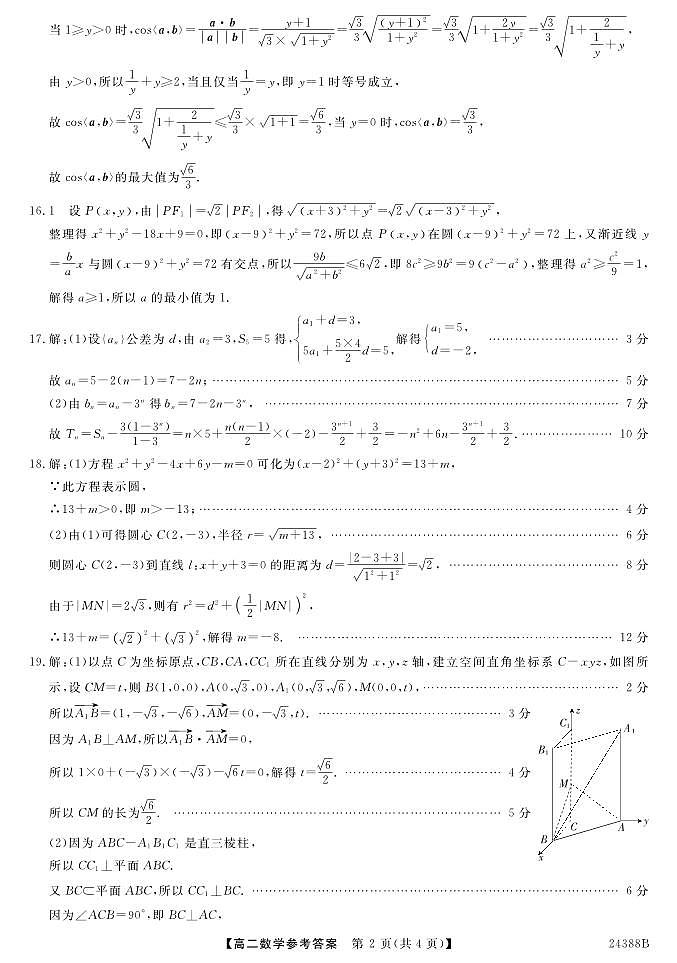 当 1≥y>0 时,cos⟨a,b⟩=a·b/(|a||b|)=(y+1)/(√3×√(1+y²))=(√3/3)√((y+1)²/(1+y²))=(√3/3)√(1+2y/(1+y²))=(√3/3)√(1+2/(1/y+y)),
由 y>0,所以1/y+y≥2,当且仅当1/y=y,即 y=1时等号成立,
故 cos⟨a,b⟩=(√3/3)√(1+2/(1/y+y))≤√3/3×√(1+1)=√6/3,当 y=0 时,cos⟨a,b⟩=√3/3,
故 cos⟨a,b⟩的最大值为√6/3.
16.1 设 P(x,y),由|PF₁|=√2|PF₂|,得√((x+3)²+y²)=√2√((x-3)²+y²),
整理得 x²+y²-18x+9=0,即(x-9)²+y²=72,所以点 P(x,y)在圆(x-9)²+y²=72 上,又渐近线 y
=(b/a)x 与圆(x-9)²+y²=72有交点,所以9b/√(a²+b²)≤6√2,即 8c²≥9b²=9(c²-a²),整理得 a²≥c²/9=1,
解得 a≥1,所以 a 的最小值为 1.
17.解:(1)设{aₙ}公差为 d,由 a₂=3,S₅=5 得,{a₁+d=3, 5a₁+(5×4/2)d=5, 解得{a₁=5, d=-2, …………………………… 3 分
故 aₙ=5-2(n-1)=7-2n; …………………………… 5 分
(2)由 bₙ=aₙ-3ⁿ 得bₙ=7-2n-3ⁿ, …………………………… 7 分
故 Tₙ=Sₙ-3(1-3ⁿ)/(1-3)=n×5+n(n-1)/2×(-2)-3ⁿ⁺¹/2+3/2=-n²+6n-3ⁿ⁺¹/2+3/2. ………………… 10 分
18.解:(1)方程 x²+y²-4x+6y-m=0 可化为(x-2)²+(y+3)²=13+m,
∵此方程表示圆,
∴13+m>0,即 m>-13; …………………………… 4 分
(2)由(1)可得圆心 C(2,-3),半径 r=√(m+13), …………………………… 6 分
则圆心 C(2,-3)到直线 l:x+y+3=0 的距离为 d=|2-3+3|/√(1²+1²)=√2, …………………………… 8 分
由于|MN|=2√3,则有 r²=d²+(1/2|MN|)²,
∴13+m=(√2)²+(√3)²,解得 m=-8. …………………………… 12 分
19.解:(1)以点 C为坐标原点,CB,CA,CC₁ 所在直线分别为 x,y,z 轴,建立空间直角坐标系 C-xyz,如图所
示,设 CM=t,则 B(1,0,0),A(0,√3,0),A₁(0,√3,√6),M(0,0,t), …………………………… 2 分
所以A₁B→=(1,-√3,-√6),AM→=(0,-√3,t). …………………………… 3 分
因为 A₁B⊥AM,所以A₁B→·AM→=0,
所以 1×0+(-√3)×(-√3)-√6t=0,解得 t=√6/2. …………………………… 4 分
所以 CM 的长为√6/2. …………………………… 5 分
(2)因为 ABC-A₁B₁C₁ 是直三棱柱,
所以 CC₁⊥平面 ABC.
又 BC⊂平面 ABC,所以 CC₁⊥BC. …………………………… 6 分
因为∠ACB=90°,即 BC⊥AC,
z
C₁
A₁
B₁
M
B
C
A
y
x
【高二数学参考答案 第 2 页(共 4 页)】
24388B